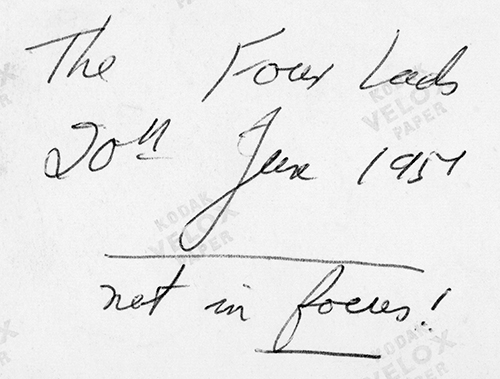 The Four Lads
20th June 1954
not in focus!
KODAK
VELOX
PAPER
KODAK
VELOX
PAPER
KODAK
VELOX
PAPER